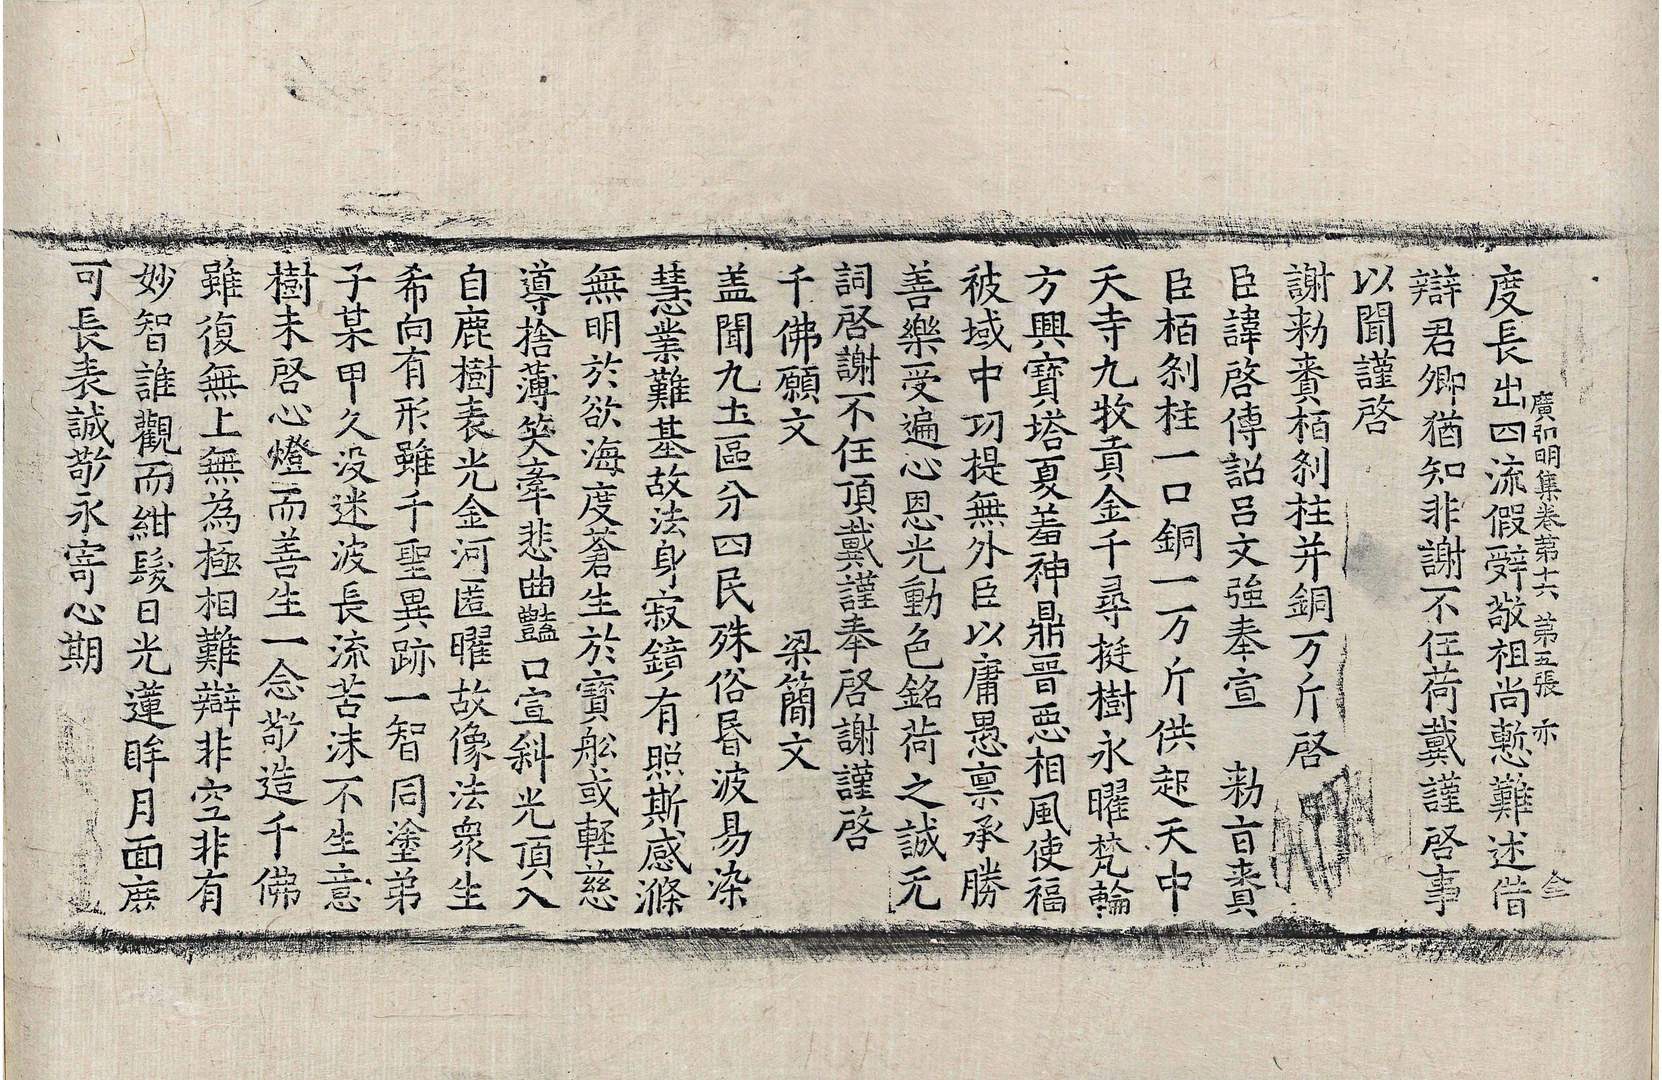 廣弘明集卷第十六 第五張 亦 仝
度長出四流假辤敬祖尚慙難述借
辯君卿猶知非謝不任荷戴謹啓事
以聞謹啓
謝勑賚栢刹柱并銅万斤啓
臣諱啓傳詔呂文強奉宣 勑旨賚
臣栢刹柱一口銅一万斤供起天中
天寺九牧貢金千尋挺樹永曜梵輪
方興寶塔夏羞神鼎晋恧相風使福
被域中功提無外臣以庸愚禀承勝
善樂受遍心恩光動色銘荷之誠无
詞啓謝不任頂戴謹奉啓謝謹啓
千佛願文 梁簡文
盖聞九土區分四民殊俗昬波易染
慧業難基故法身寂鏡有照斯感滌
無明於欲海度蒼生於寶舩或輕慈
導捨薄笑牽悲曲豔口宣斜光頂入
自鹿樹表光金河匿曜故像法衆生
希向有形雖千聖異跡一智同塗弟
子某甲久没迷波長流苦沫不生意
樹未啓心燈而善生一念敬造千佛
雖復無上無為極相難辯非空非有
妙智誰觀而紺髮日光蓮眸月面庶
可長表誠敬永寄心期